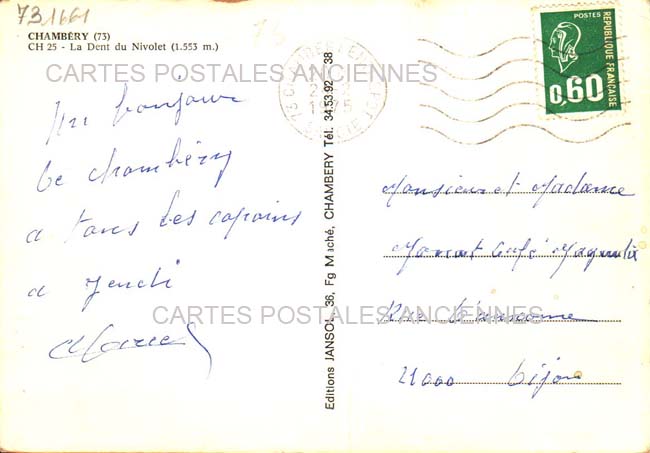 73 1661
CHAMBÉRY (73)
CH 25 - La Dent du Nivolet (1.553 m.)
CARTES POSTALES ANCIENNES
Un bonjour
de chambéry
a tous les copains
a jeudi
Editions JANSOL, 36, Fg Maché, CHAMBERY Tél. 34.53.92 - 38
POSTES
REPUBLIQUE FRANÇAISE
0,60
Monsieur et Madame
Café
Rue
21000 Dijon
CARTES POSTALES ANCIENNES